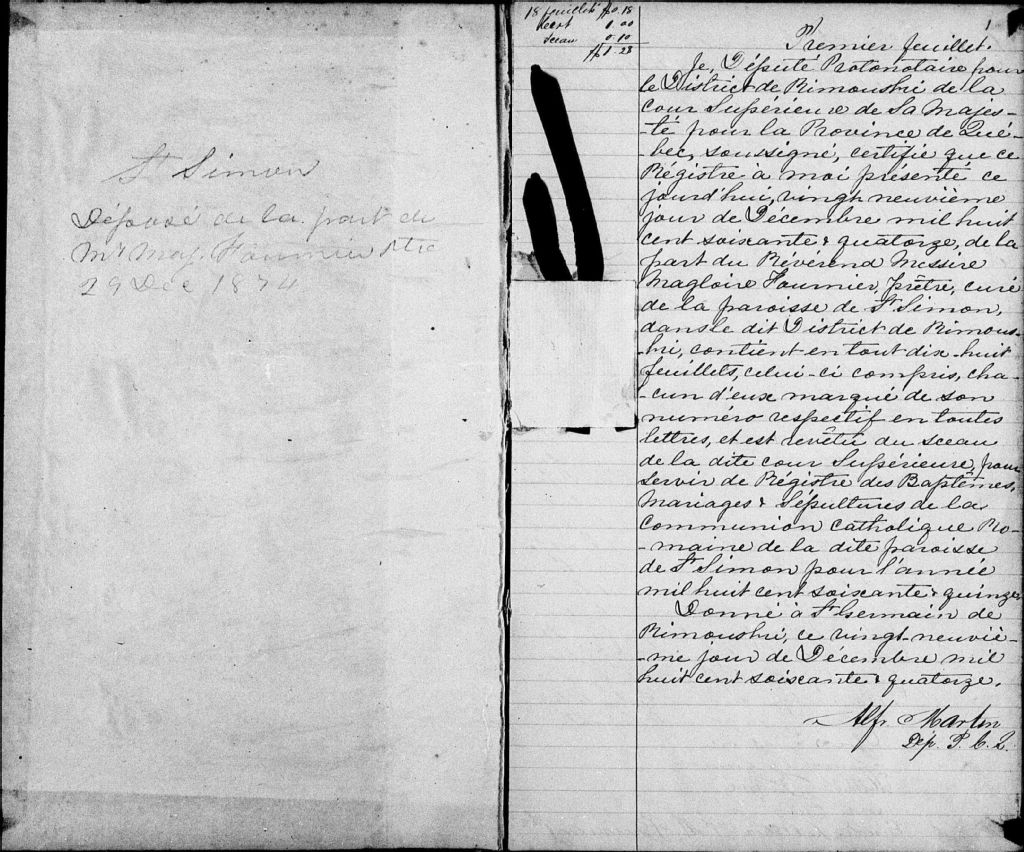 St Simon
Déposé de la part de
Mr Mag. Fournier Ptre
29 Dec 1874
18 feuillets $0.18
Écert 1.00
Sceau 0.10
$1.28
1
Premier feuillet.
Je, Député Protonotaire pour
le District de Rimouski de la
Cour Supérieure de Sa Majes-
-té pour la Province de Qué-
-bec, soussigné, certifie que ce
Régistre à moi présenté ce
jourd'hui, vingt neuvième
jour de Décembre mil huit
cent soixante & quatorze, de la
part du Révérend Messire
Magloire Fournier, prêtre, curé
de la paroisse de St Simon,
dans le dit District de Rimous-
-ki, contient en tout dix-huit
feuillets, celui-ci compris, cha-
-cun d'eux marqué de son
numéro respectif en toutes
lettres, et est revêtu du sceau
de la dite cour Supérieure, pour
servir de Régistre des Baptêmes,
Mariages & Sépultures de la
Communion Catholique Ro-
-maine de la dite paroisse
de St Simon pour l'année
mil huit cent soixante & quinze.
Donné à St Germain de
Rimouski, ce vingt-neuviè-
-me jour de Décembre mil
huit cent soixante & quatorze.
Alfr. Martin
Dép. P. C. S.